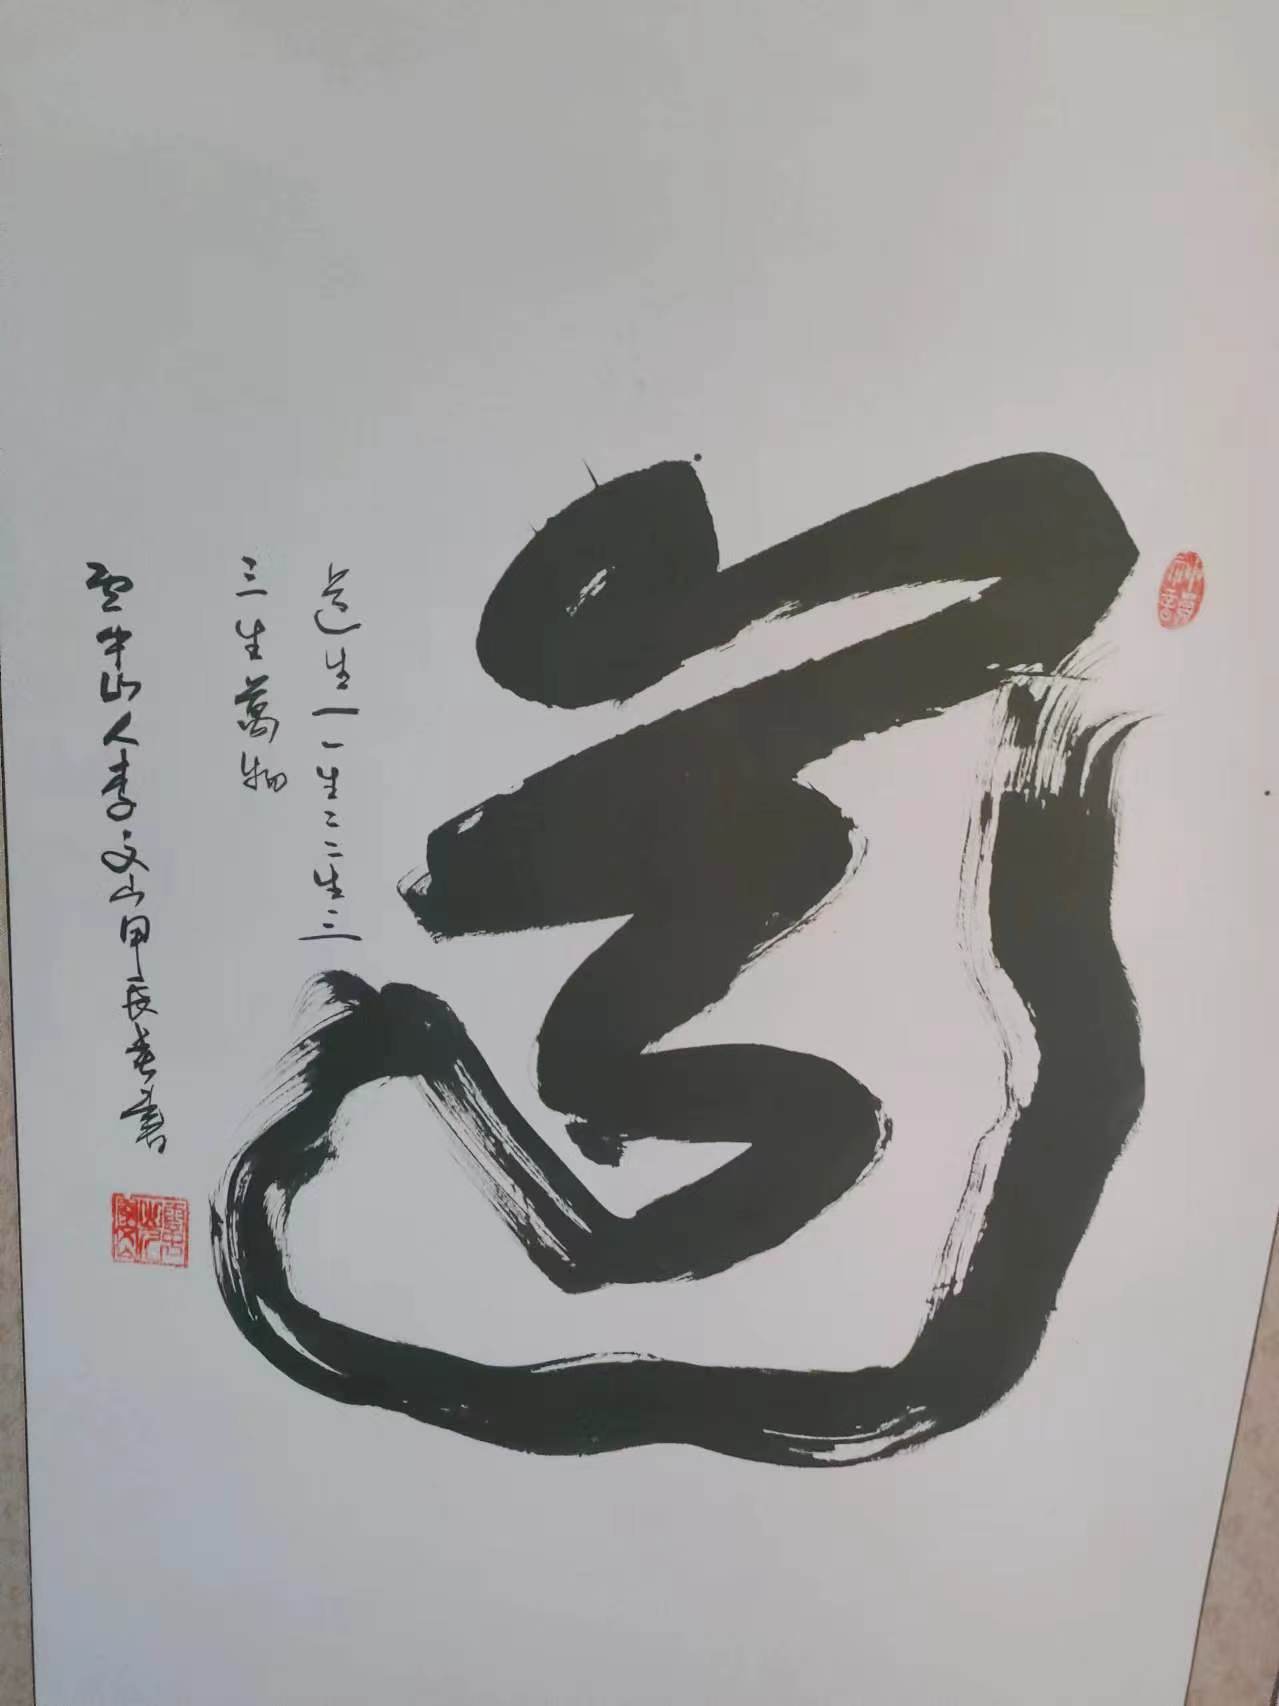 道
道生一一生二二生三
三生萬物
雲中山人李文山甲辰春書